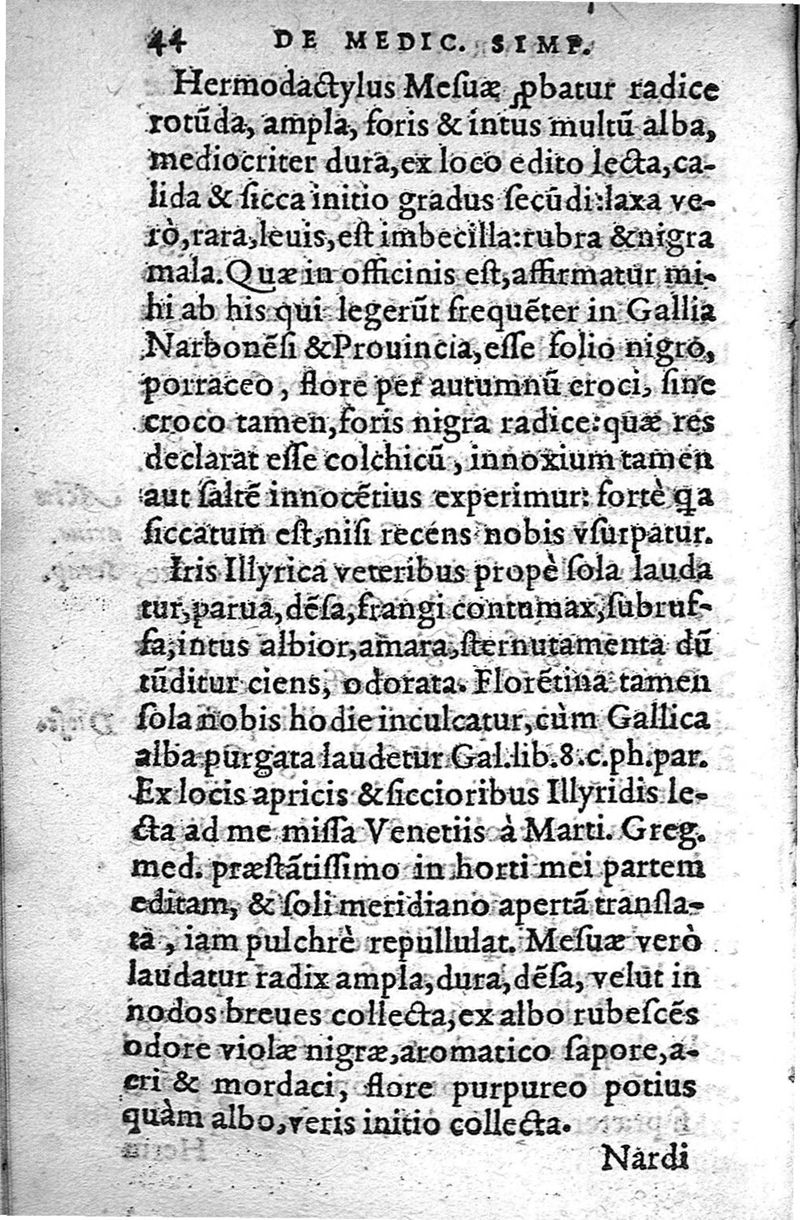 44 DE MEDIC. SIMP.
Hermodactylus Mesuæ ꝓbatur radice
rotũda, ampla, foris & intus multũ alba,
mediocriter dura, ex loco edito lecta, ca-
lida & sicca initio gradus secũdi: laxa ve-
rò, rara, leuis, est imbecilla: rubra & nigra
mala. Quæ in officinis est, affirmatur mi-
hi ab his qui legerũt frequẽter in Gallia
Narbonẽsi & Prouincia, esse folio nigro,
porraceo, flore per autumnũ croci, sine
croco tamen, foris nigra radice: quæ res
declarat esse colchicũ, innoxium tamen
aut saltẽ innocẽtius experimur: fortè qa
siccatum est, nisi recens nobis vsurpatur.
Iris Illyrica veteribus propè sola lauda
tur, parua, dẽsa, frangi contumax, subruf-
fa, intus albior, amara, sternutamenta dũ
tũditur ciens, odorata. Florẽtina tamen
sola nobis hodie inculcatur, cùm Gallica
alba purgata laudetur Gal. lib. 8. c. ph. par.
Ex locis apricis & siccioribus Illyridis le-
cta ad me missa Venetiis à Marti. Greg.
med. præstãtissimo in horti mei partem
editam, & soli meridiano apertã transla-
ta, iam pulchrè repullulat. Mesuæ verò
laudatur radix ampla, dura, dẽsa, velut in
nodos breues collecta, ex albo rubescẽs
odore violæ nigræ, aromatico sapore, a-
cri & mordaci, flore purpureo potius
quàm albo, veris initio collecta.
Nardi